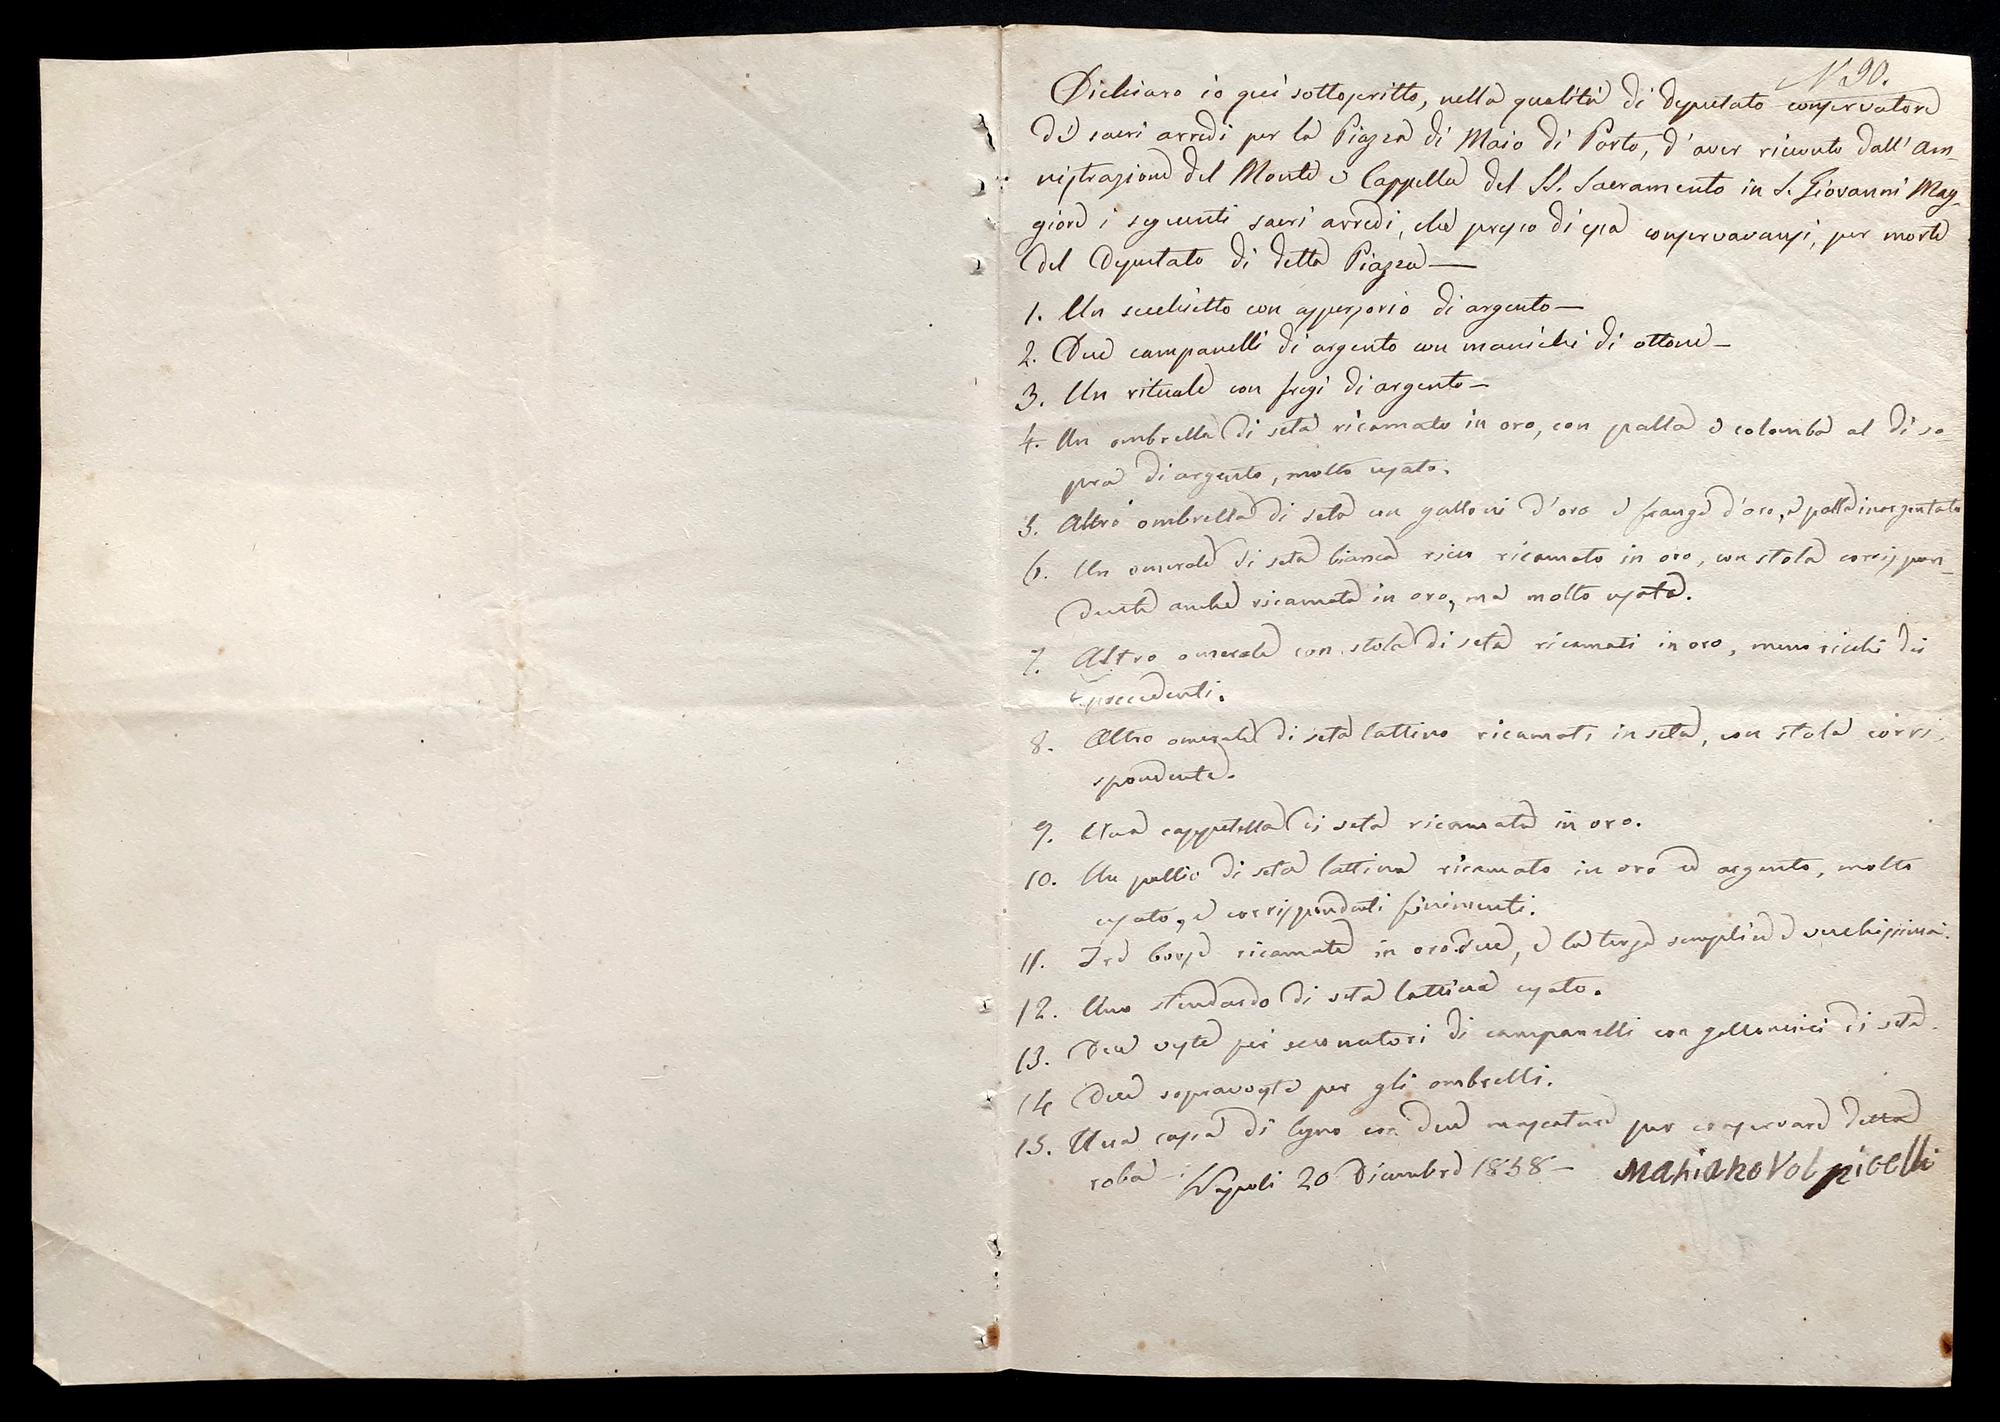 N 90.
Dichiaro io qui sottoscritto, nella qualità di Deputato conservatore
di sacri arredi per la Piazza di Maio di Porto, d'aver ricevuto dall'Am-
nistrazione del Monte e Cappella del SS. Sacramento in S. Giovanni Mag-
giore i seguenti sacri arredi, che presso di essa conservavansi, per morte
del Deputato di detta Piazza —
1. Un secchietto con aspersorio di argento —
2. Due campanelli di argento con manichi di ottone —
3. Un rituale con fregi di argento —
4. Un ombrella di seta ricamato in oro, con palla e colomba al di so-
pra di argento, molto usato.
5. Altro ombrella di seta con galloni d'oro e frange d'oro, e palla inargentata
6. Un omerale di seta bianca ricco ricamato in oro, con stola corrispon-
dente anche ricamata in oro, ma molto usata.
7. Altro omerale con stola di seta ricamati in oro, meno ricchi dei
precedenti.
8. Altro omerale di seta lattino ricamati in seta, con stola corri-
spondente.
9. Una cappetella di seta ricamata in oro.
10. Un pallio di seta lattina ricamato in oro ed argento, molto
usato, e corrispondenti finimenti.
11. Tre borse ricamate in oro due, e la terza semplice e vecchissima.
12. Uno stendardo di seta lattina usato.
13. Due veste per suonatori di campanelli con galloncini di seta.
14 Due sopraveste per gli ombrelli.
15. Una cassa di legno con due mascature per conservare detta
roba — Napoli 20 Dicembre 1858 — Mariano Volpicelli